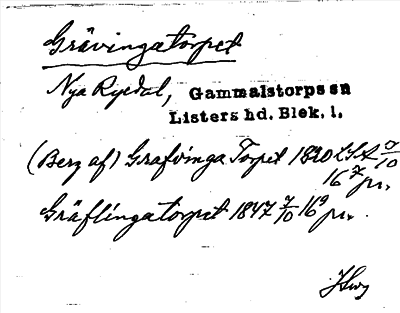 Grävingatorpet
Nya Rydal, Gammalstorps sn
Listers hd. Blek. l.
(Berg af) Grafvinga Torpet 1820 LSA 7/10
16 7 pr.
Gräflingatorpet 1847 7/10 16 9 pr.